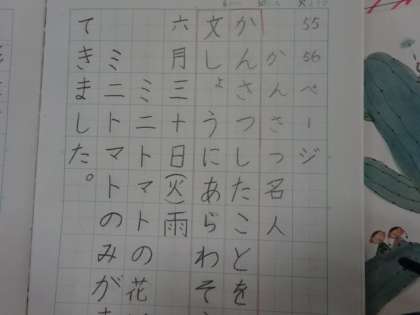 55 56ページ
かんさつ名人
かんさつしたことを
文しょうにあらわそ
六月三十日(火)雨
ミニトマトの花
ミニトマトのみが
てきました。